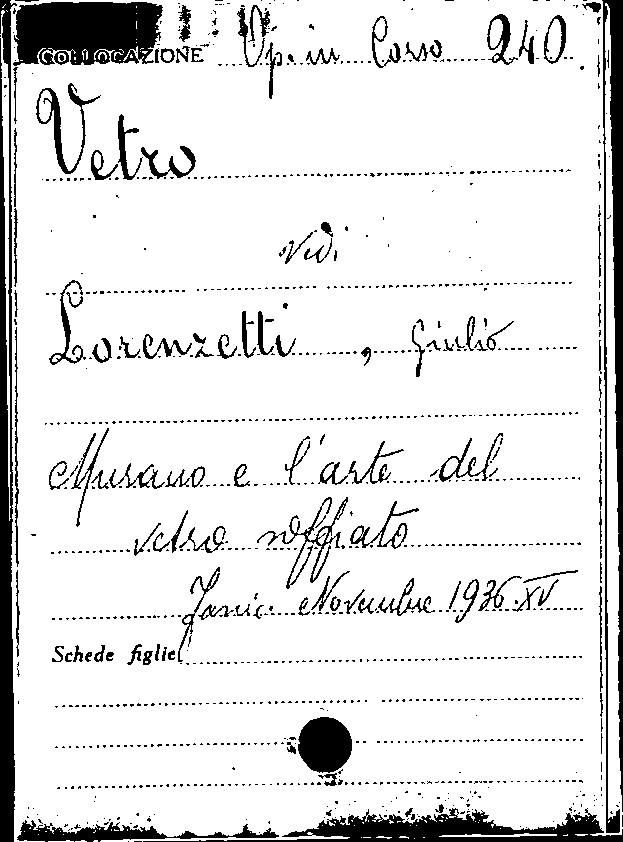 COLLOCAZIONE Op. in Corso 240.
Vetro
vedi
Lorenzetti, Giulio
Murano e l'arte del
vetro soffiato
Fasic. Novembre 1936.XV
Schede figlie